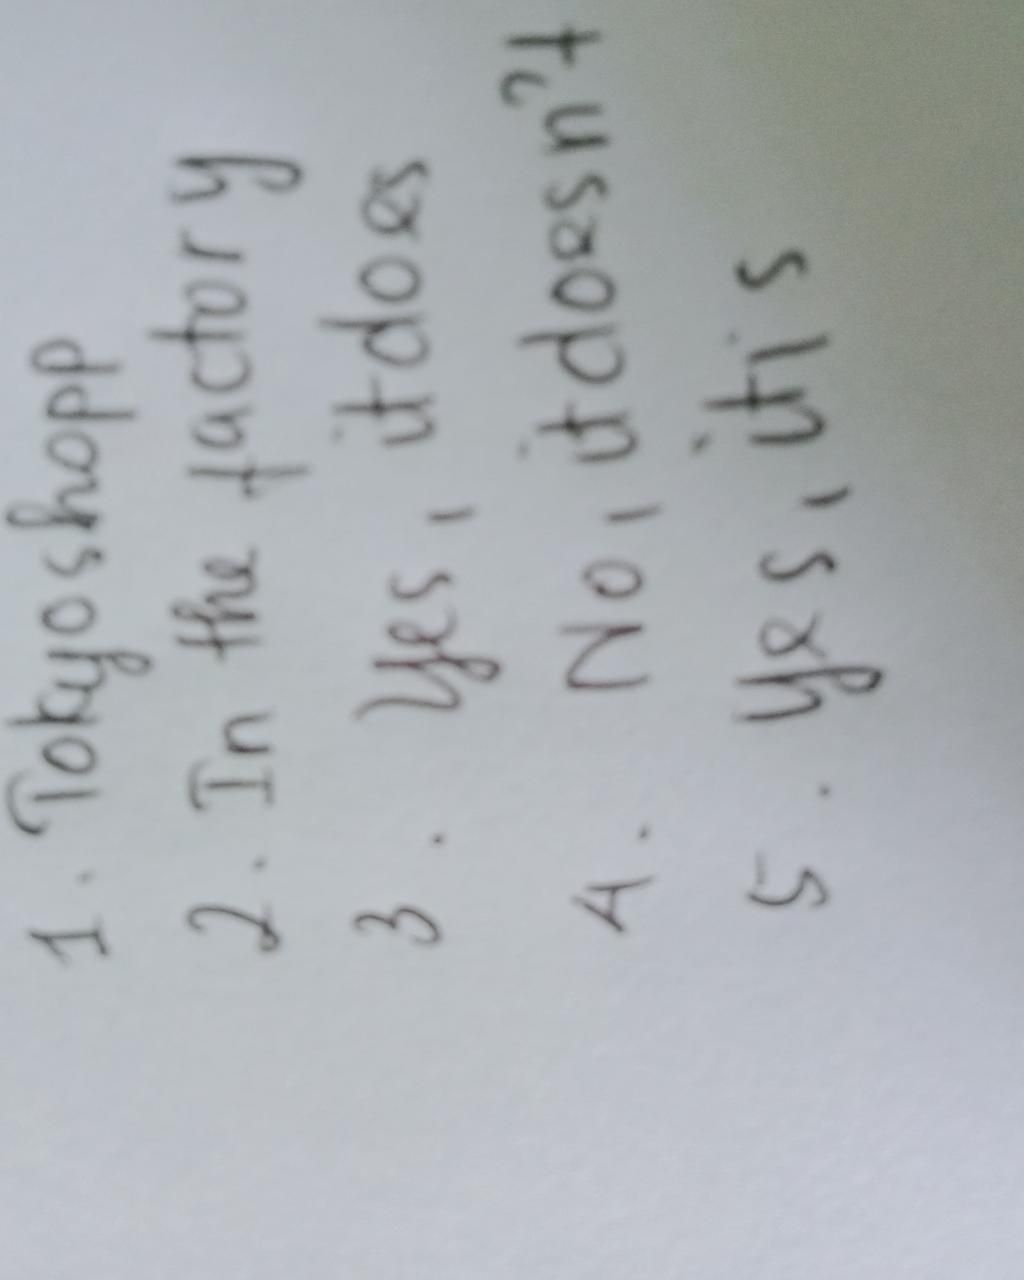 1. Tokyo shopp
2. In the factory
3. Yes, it does
4. No, it doesn't
5. Yes, it is